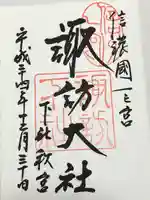 信濃國一之宮
諏訪大社
下社秋宮
平成二十四年十二月三十日